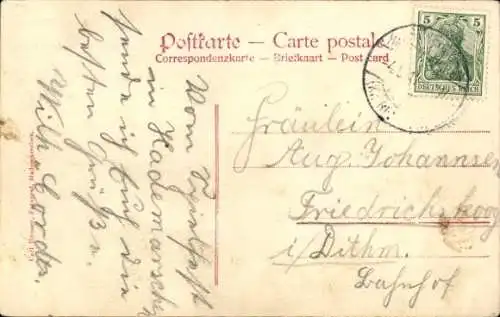 Postkarte — Carte postale
Correspondenzkarte — Briefkaart — Post card
5 5
DEUTSCHES REICH
Fräulein
Aug. Johannsen
Friedrichskoog
i/Dithm.
Bahnhof
Vom
in Hademarschen
sende ich Euch die
besten Grüße.
Wilh. Cordes.